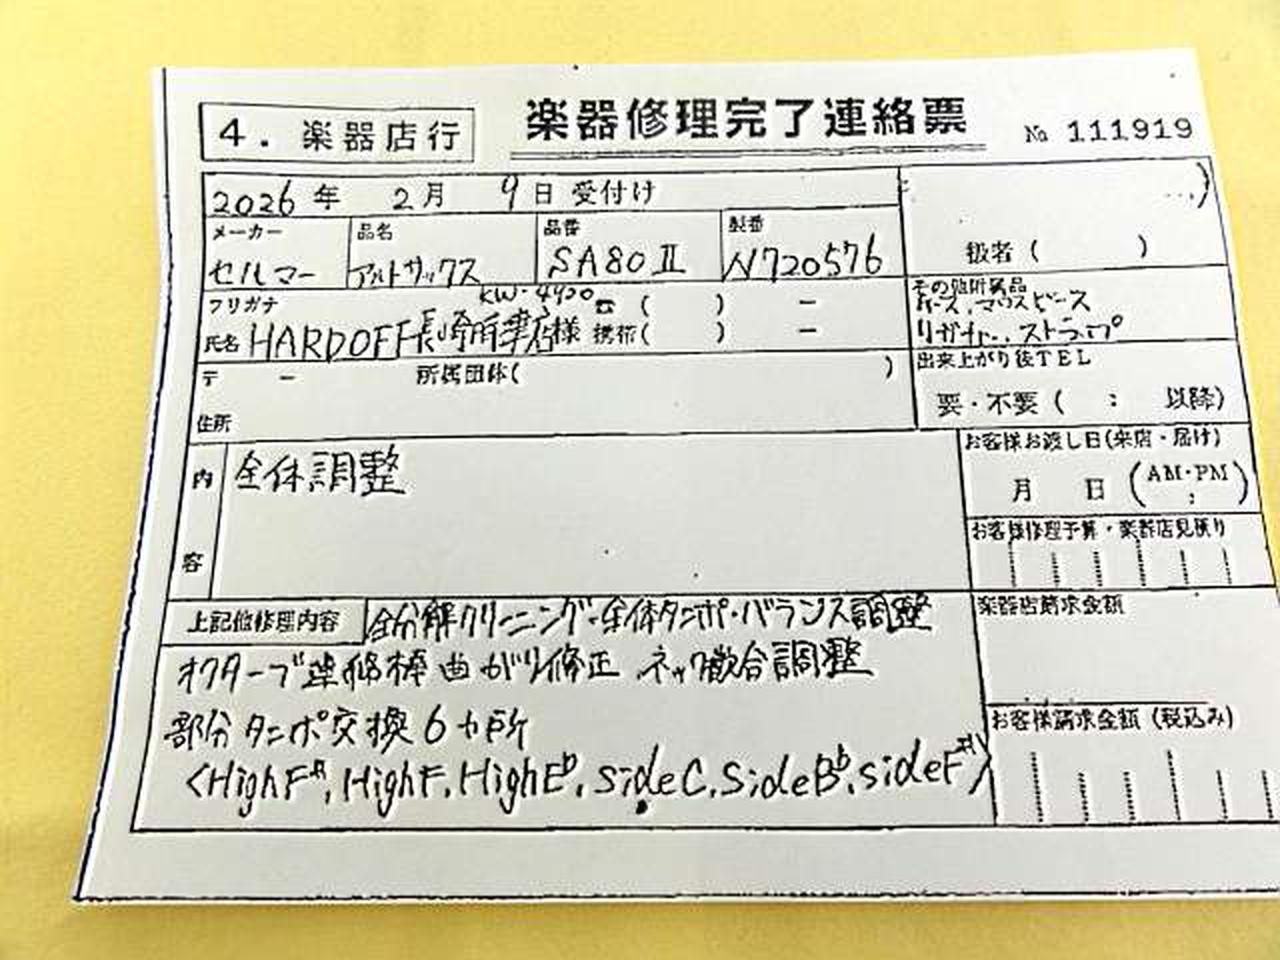 4. 楽器店行
楽器修理完了連絡票
№ 111919
2026年 2月 9日 受付け
メーカー
セルマー
品名
アルトサックス
品番
SA80Ⅱ
製番
N720576
級者 ( )
フリガナ
☎ ( ) －
氏名 HARDOFF長崎時津店様
携帯( ) －
その他附属品
ケース、マウスピース
リガチャー、ストラップ
〒 － 所属団体( )
住所
出来上がり後TEL
要・不要 ( : 以降)
内容
全体調整
お客様お渡し日(来店・届け)
月 日 (AM・PM : )
お客様修理予算・楽器店見積り
上記他修理内容
全分解クリーニング・全体タンポ・バランス調整
オクターブ連絡棒曲がり修正 ネック嵌合調整
部分タンポ交換6カ所
〈HighF♯, HighF, HighE♭, sideC, SideB♭, sideF♯〉
楽器店請求金額
お客様請求金額 (税込み)